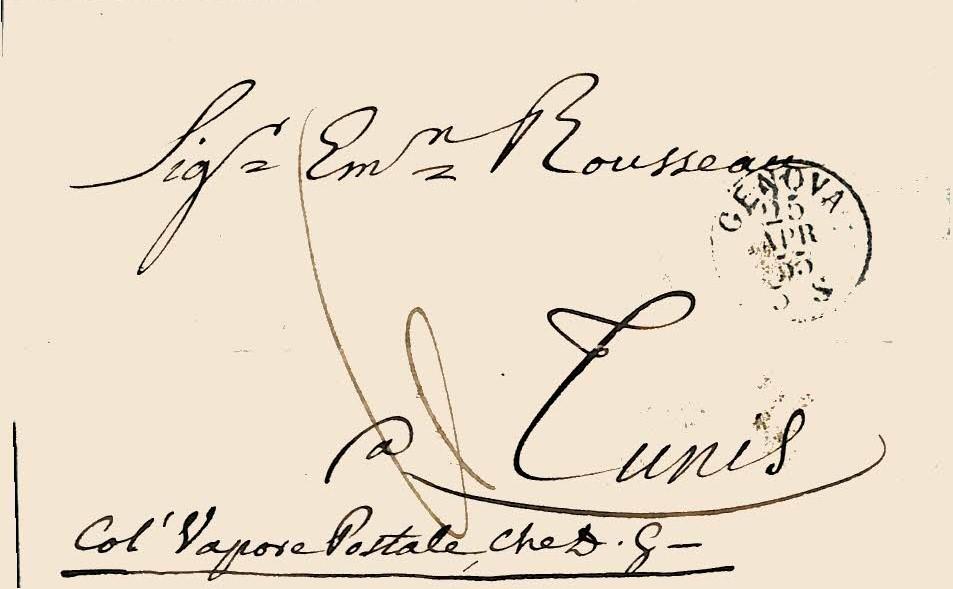 Sig.r Em.n Rousseau
GENOVA
25
APR
55
S
a Tunis
Col' Vapore Postale, Che D. G—